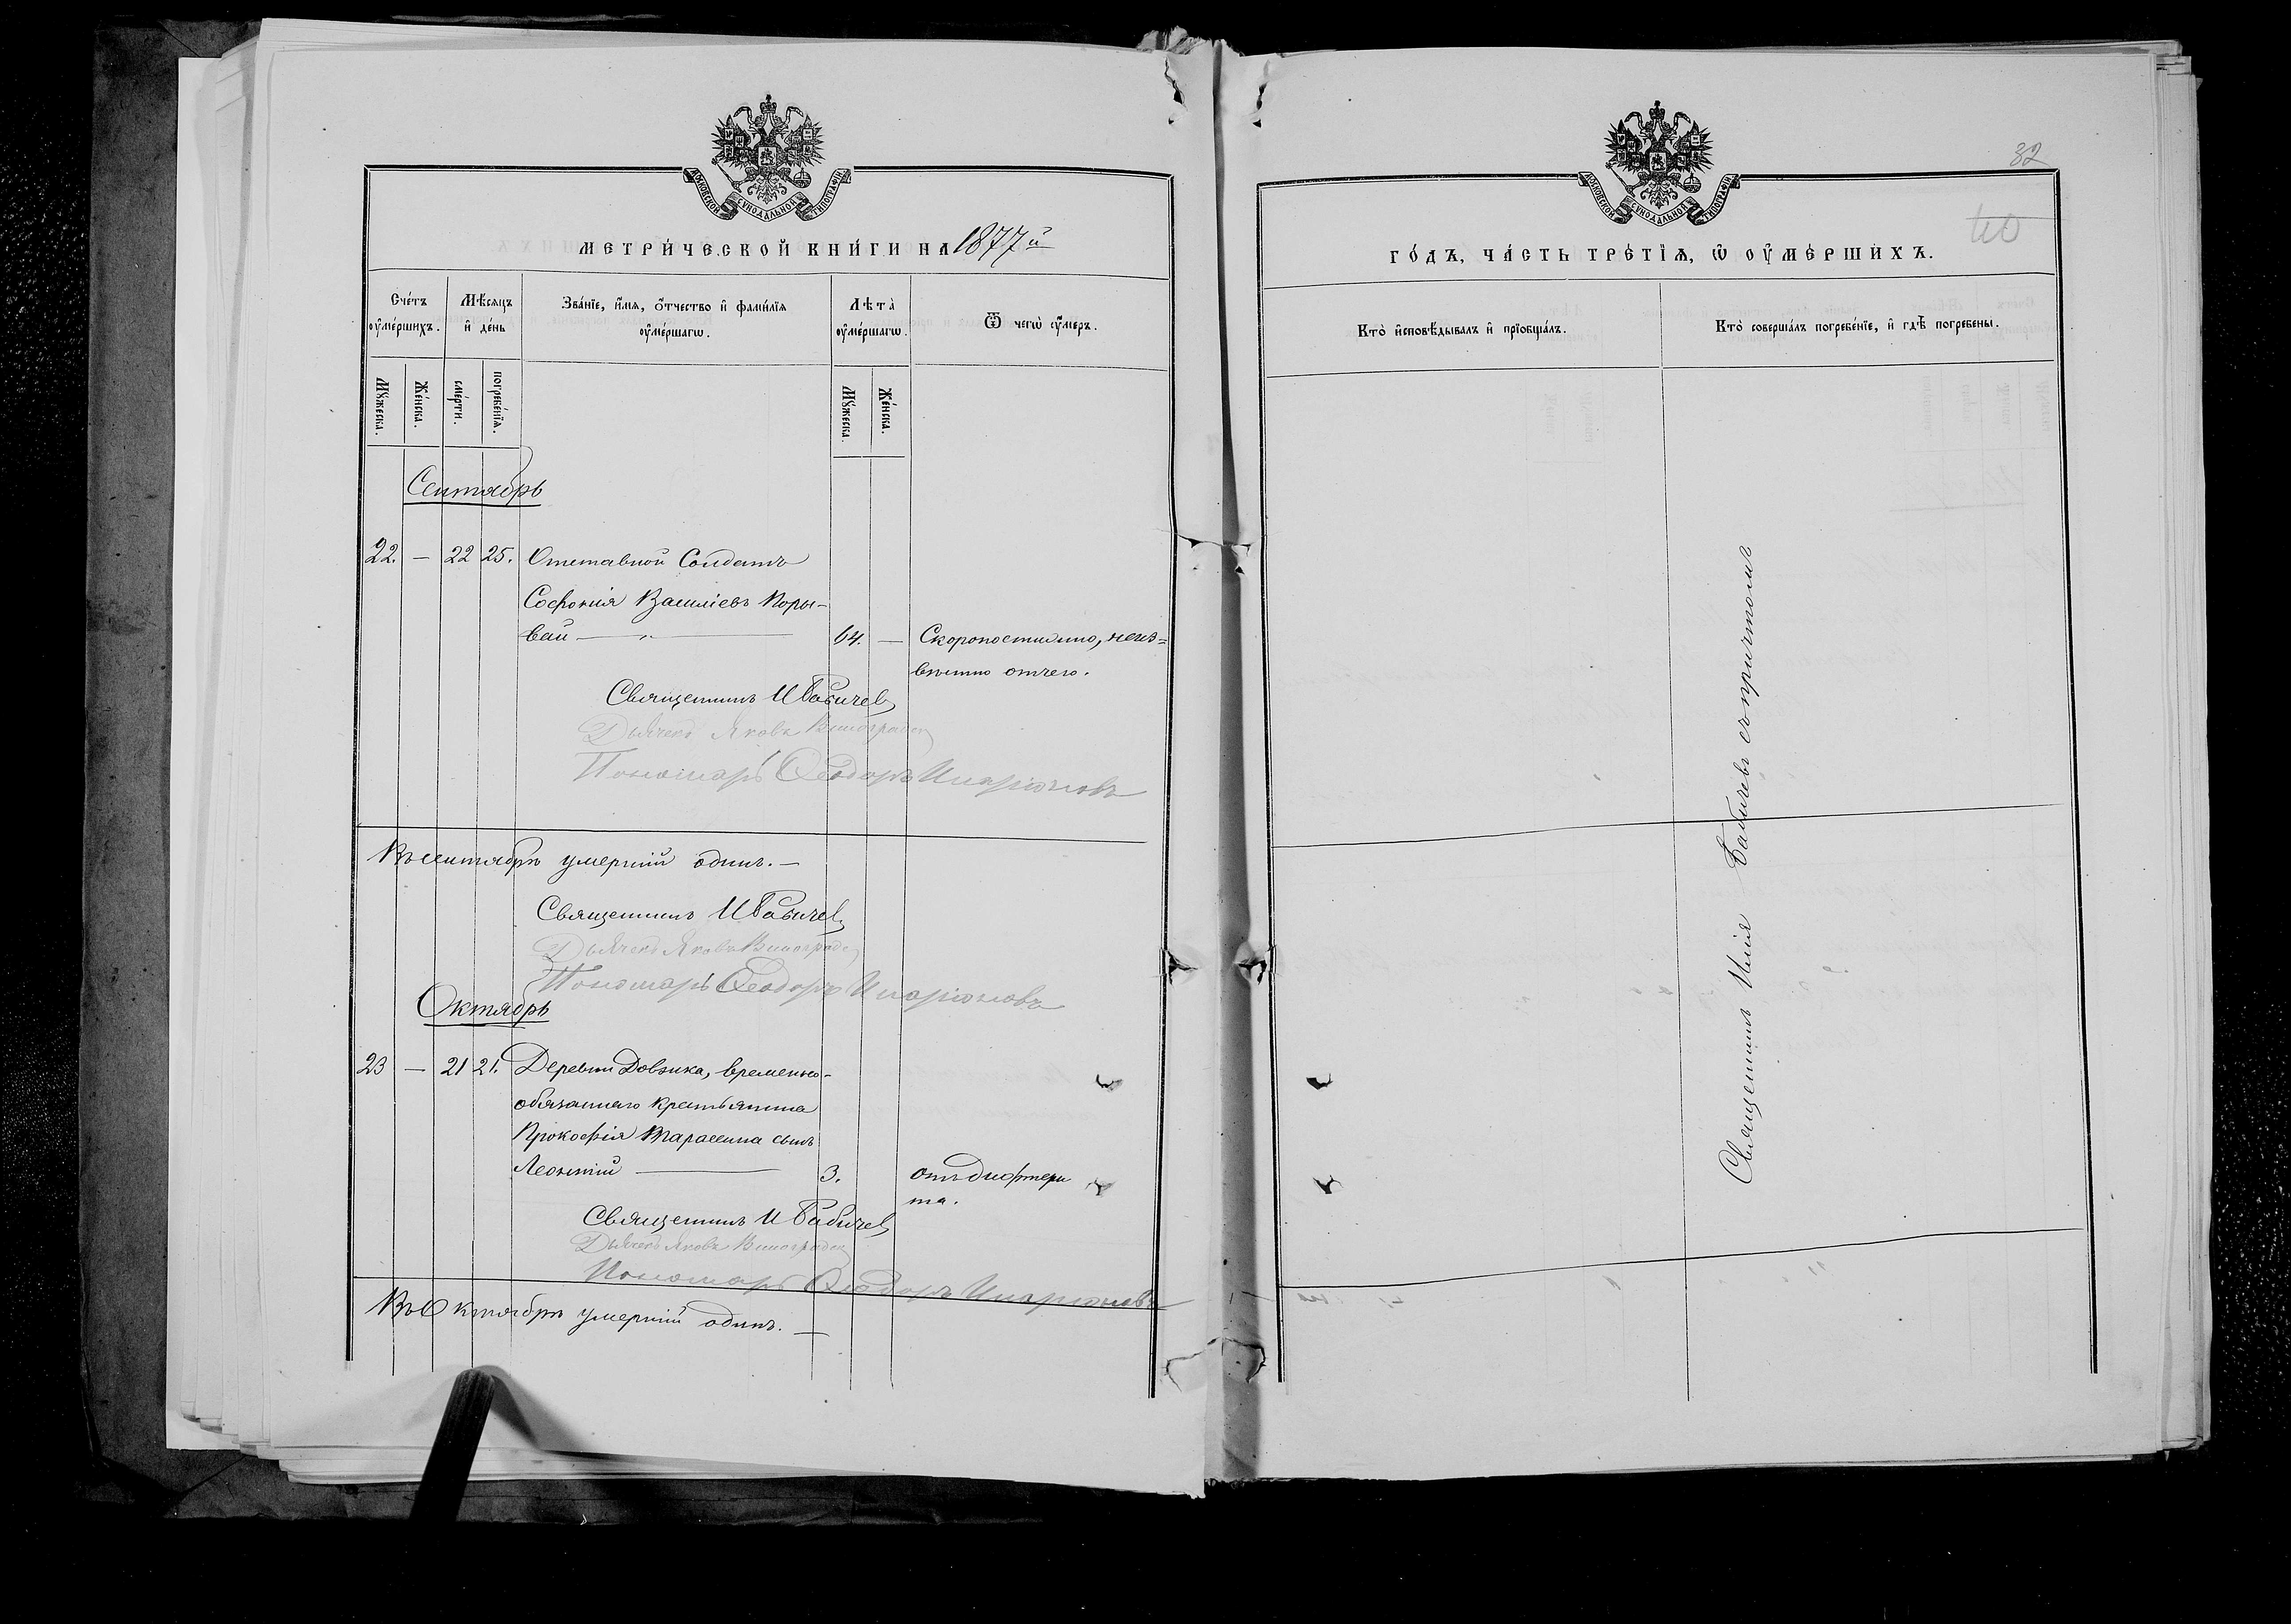 МОСКОВСКОЙ СѴНОДАЛЬНОЙ ТИПОГРАФІИ
МЕТРИ́ЧЕСКОЙ КНИ́ГИ НА 1877 й
Сче́тъ оу҆ме́ршихъ.
Мѣ́сяцъ и҆ де́нь
Зва́нїе, и҆́мя, о҆́тчество и҆ фами́лїя оу҆ме́ршагѡ.
Лѣ́та оу҆ме́ршагѡ.
Ѿ чегѡ̀ оу҆́меръ.
Мꙋ́жеска.
Же́нска.
сме́рти.
погребе́нїя.
Мꙋ́жеска.
Же́нска.
Сентябрь
22. — 22 25. Отставной Солдатъ
Софонія Василіевъ Поры-
вай — 64. — Скоропостижно, неиз=
вѣстно отчего.
Священникъ И Бабичев
Дьячекъ Яковъ Виноградов
Пономарь Ѳеодоръ Иларіоновъ
Въ сентябрѣ умершій одинъ. —
Священникъ И Бабичев
Дьячекъ Яковъ Виноградов
Пономарь Ѳеодоръ Иларіоновъ
Октябрь
23 — 21 21. Деревни Довжика, временно-
обязаннаго крестьянина
Прокофія Тарасенка сынъ
Леонтій — 3. отъ дифтери
та.
Священникъ И Бабичев
Дьячекъ Яковъ Виноградов
Пономарь Ѳеодоръ Иларіоновъ
Въ Октябрѣ умершій одинъ. —
32
МОСКОВСКОЙ СѴНОДАЛЬНОЙ ТИПОГРАФІИ
40
ГО́ДЪ, ЧА́СТЬ ТРЕ́ТЇЯ, Ѡ҆ ОУ҆МЕ́РШИХЪ.
Кто̀ и҆сповѣ́дывалъ и҆ прїобща́лъ.
Кто̀ соверша́лъ погребе́нїе, и҆ гдѣ̀ погребены̀.
Священникъ Илія Бабичевъ съ причтомъ